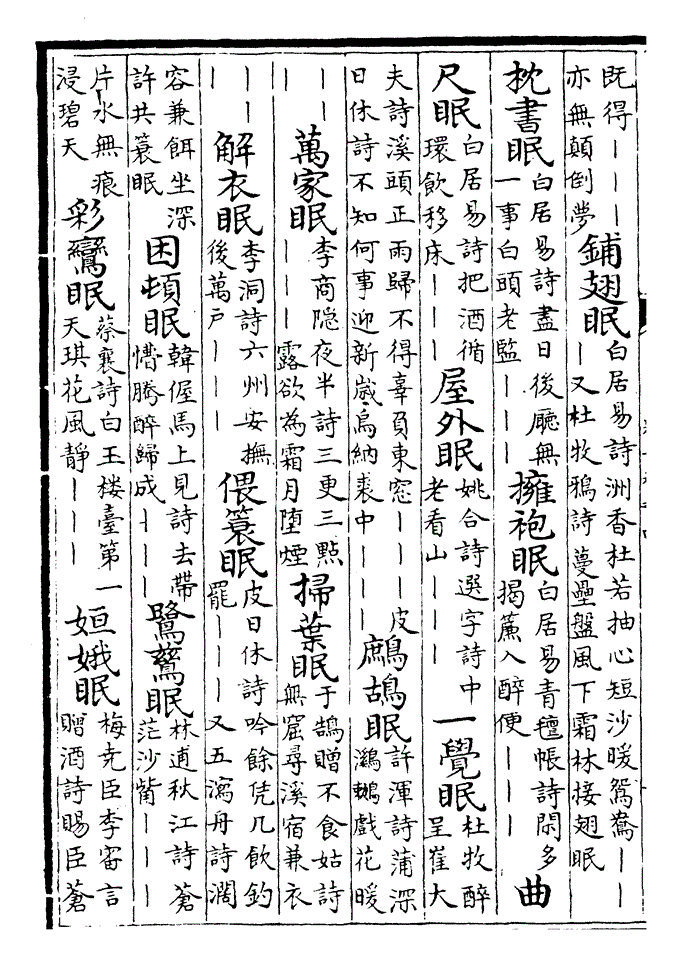 既得｜｜｜亦無顛倒夢鋪翅眠白居易詩洲香杜若抽心短沙暖鴛鴦｜｜｜又杜牧鴉詩蔓壘盤風下霜林接翅眠
枕書眠白居易詩盡日後廳無一事白頭老監｜｜｜擁袍眠白居易青氊帳詩閑多揭簾入醉便｜｜｜曲
尺眠白居易詩把酒循環飲移床｜｜｜屋外眠姚合詩選字詩中老看山｜｜｜一覺眠杜牧醉呈崔大
夫詩溪頭正雨歸不得辜負東窓｜｜｜皮日休詩不知何事迎新歲烏納裘中｜｜｜鷓鴣眠許渾詩蒲深鸂鶒戲花暖
｜｜｜萬家眠李商隐夜半詩三更三點｜｜｜露欲為霜月堕煙掃葉眠于鵠贈不食姑詩無窟尋溪宿兼衣
｜｜｜解衣眠李洞詩六州安撫後萬戸｜｜｜偎簑眠皮日休詩吟餘凭几飲釣罷｜｜｜又五瀉舟詩濶
容兼餌坐深許共簑眠困頓眠韓偓馬上見詩去帶懵騰醉歸成｜｜｜鷺鶿眠林逋秋江詩蒼茫沙觜｜｜｜
片水無痕浸碧天彩鸞眠蔡襄詩白玉楼臺第一天琪花風静｜｜｜姮娥眠梅尭臣李審言贈酒詩賜臣蒼